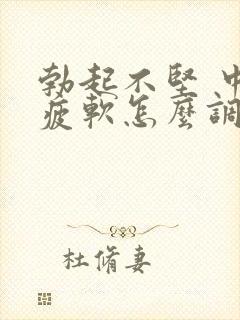 勃起不堅 中
疲軟怎麼調
杜脩妻